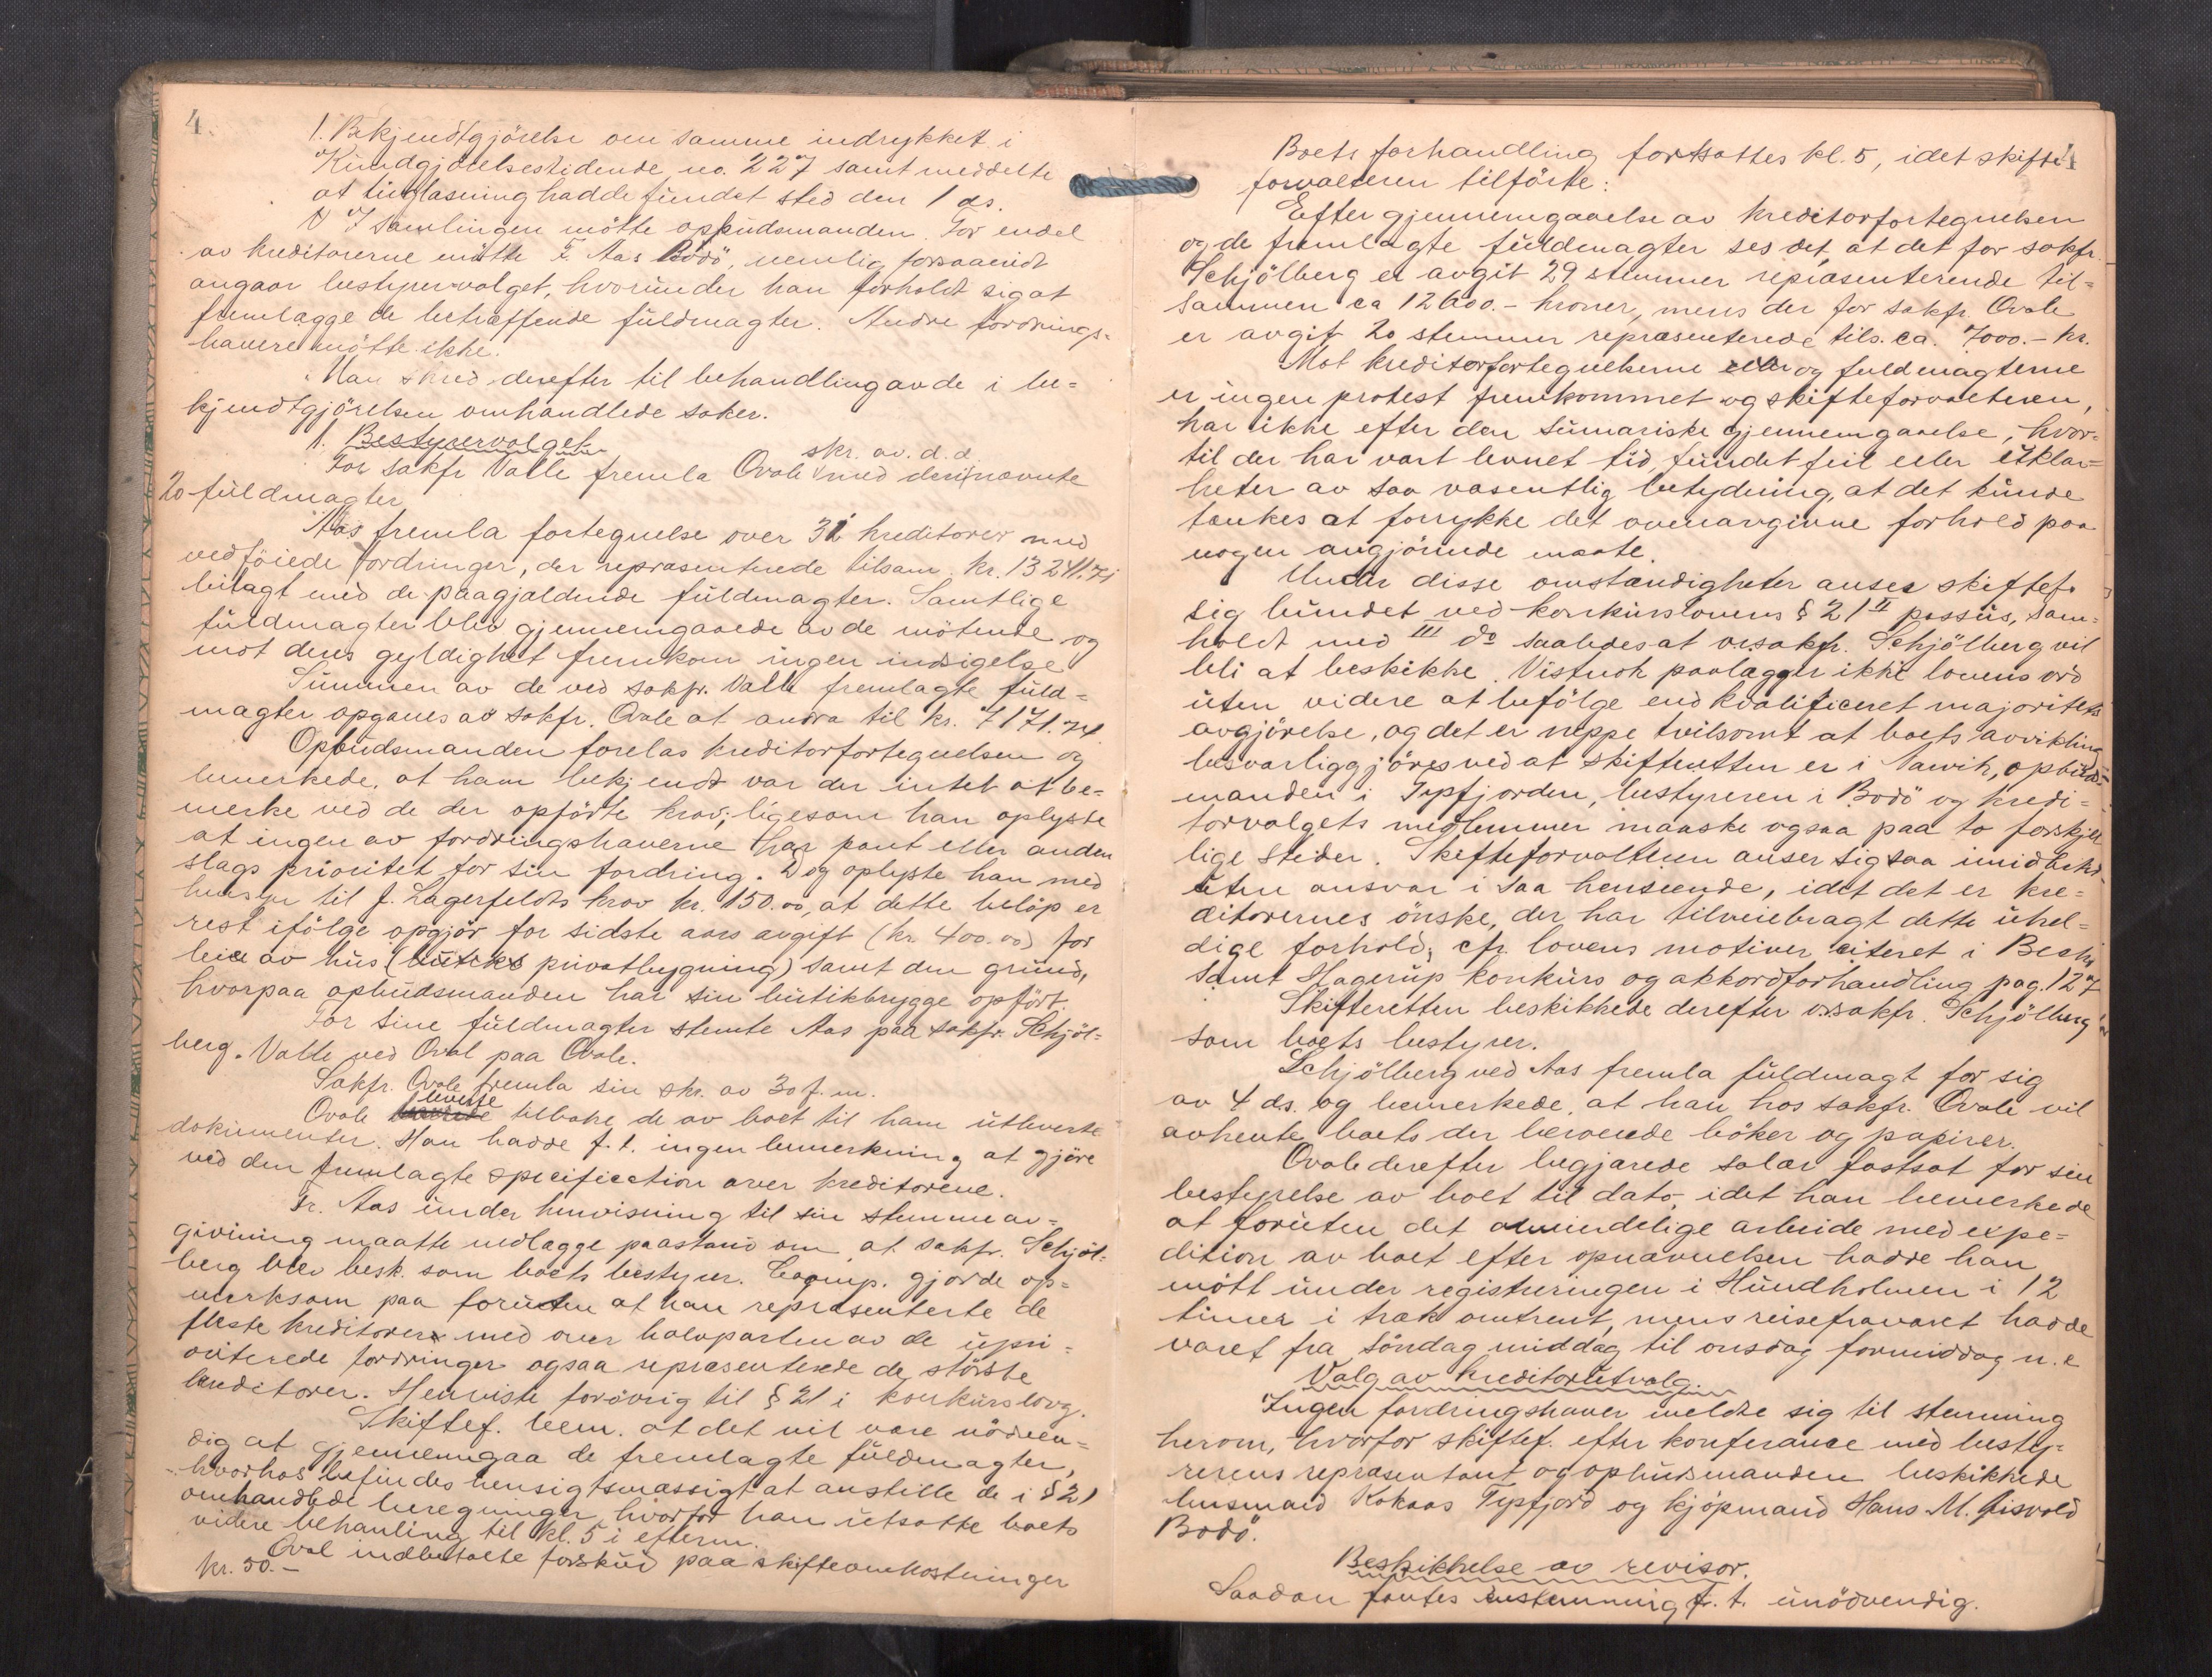 4.
1. Bekjendtgjörelse om samme indrykket i
Kundgjörelsestidende no. 227 samt meddelte
at tinglæsning hadde fundet sted den 1 ds.
I samlingen mötte opbudsmanden. For endel
av kreditorerne mötte Fr. Aas Bodö, nemlig forsaavidt
angaar bestyrervalget, hvorunder han forholdt sig at
fremlægge de betræffende fuldmagter. Andre fordrings-
havere mötte ikke.
Man skred derefter til behandling av de i be-
kjendtgjörelsen omhandlede saker.
1. Bestyrervalget.
skr. av. d. d.
For sakfr Valle fremla Ovale med deri nævnte
20 fuldmagter
Aas fremla fortegnelse over 31 kreditorer med
vedföiede fordringer, der repræsenterede tilsam. kr. 13241.71
bilagt med de paagjældende fuldmagter. Samtlige
fuldmagter blev gjennemgaaede av de mötende og
mot dens gyldighet fremkom ingen indsigelse
Summen av de ved sakfr. Valle fremlagte fuld-
magter opgaves av sakfr. Ovale at andra til kr. 7171.74
Opbudsmanden forelæs kreditorfortegnelsen og
bemerkede, at ham bekjendt var der intet at be-
merke ved de der opförte krav; ligesom han oplyste
at ingen av fordringshaverne har pant eller anden
slags prioritet for sin fordring. Dog oplyste han med
hensyn til J. Lagerfeldts krav kr. 150.00, at dette belöp er
rest ifölge opgjör for sidste aars avgift (kr. 400.00) for
leie av hus (butiks privatbygning) samt den grund,
hvorpaa opbudsmanden har sin butikbrygge opfört.
For sine fuldmagter stemte Aas paa sakfr. Schjöl-
berg. Valle ved Oval paa Ovale.
Sakfr. Ovale fremla sin skr. av 30 f. m.
leverte
Ovale tilbake de av boet til ham utleverte
dokumenter. Han hadde f. t. ingen bemerkning at gjöre
ved den fremlagte specification over kreditorene.
Fr. Aas under henvisning til sin stemmeav-
givning maatte nedlægge paastand om at sakfr. Schjöl-
berg blev besk. som boets bestyrer. Comp. gjorde op-
merksom paa foruten at han repræsenterte de
fleste kreditorer med over halvparten av de upri-
oriterede fordringer ogsaa repræsenterede de störste
kreditorer. Henviste forövrig til § 21 i konkurslovg.
Skiftef. bem. at det vil være nödven-
dig at gjennemgaa de fremlagte fuldmagter,
hvorhos befindes hensigtsmæssigt at anstille de i § 21
omhandlede beregninger, hvorfor han utsatte boets
videre behanling til kl. 5 i efterm.
Oval indbetalte forskud paa skifteomkostninger
kr. 50.-
4
Boets forhandling fortsattes kl. 5, idet skifte-
forvalteren tilförte:
Efter gjennemgaaelse av kreditorfortegnelsen
og de fremlagte fuldmagter ses det, at det for sakfr.
Schjölberg er avgit 29 stemmer repræsenterende til-
sammen ca 12600.- kroner, mens der for sakfr. Ovale
er avgit 20 stemmer repræsenterede tils. ca. 7000.- kr.
Mot kreditorfortegnelserne og fuldmagterne
er ingen protest fremkommet og skifteforvalteren,
har ikke efter den sumariske gjennemgaaelse, hvor-
til der har vært levnet tid fundet feil eller uklar-
heter av saa væsentlig betydning, at det kunde
tænkes at forrykke det ovenavgivne forhold paa
nogen avgjörende maate.
Under disse omstændigheter anses skiftef.
sig bundet ved konkurslovens § 21 II passus, sam-
holdt med III do saaledes at o.r.sakfr. Schjölberg vil
bli at beskikke. Vistnok paalægger ikke lovens ord
uten videre at befölge end kvalificeret majoritets
avgjörelse, og det er neppe tvilsomt at boets avvikling
besværliggjöres ved at skifteretten er i Narvik, opbuds-
manden i Typfjorden, bestyreren i Bodö og kredi-
torvalgets medlemmer maaske ogsaa paa to forskjel
lige steder. Skifteforvalteren anser sig saa imidlertid
uten ansvar i saa henseende, idet det er kre-
ditorernes önske, der har tilveiebragt dette uhel-
dige forhold; cfr. lovens motiver citeret i
samt Hagerup konkurs og akkordforhandling pag. 127
Skifteretten beskikkede derefter o.r.sakfr. Schjölberg
som boets bestyrer.
Schjölberg ved Aas fremla fuldmagt for sig
av 4 ds. og bemerkede, at han hos sakfr. Ovale vil
avhente boets der beroende böker og papirer.
Ovale derefter begjærede salær fastsat for sin
bestyrelse av boet til dato, idet han bemerkede
at foruten det almindelige arbeide med expe-
dition av boet efter opnævnelsen hadde han
mött under registreringen i Hundholmen i 12
timer i træk omtrent, mens reisefraværet hadde
varet fra Söndag middag til onsdag formiddag n. e
Valg av kreditorutvalg.
Ingen fordringshaver meldte sig til stemning
herom, hvorfor skiftef. efter konferance med besty-
rerens repræsentant og opbudsmanden beskikkede
lensmand Kokaas Typfjord og kjöpmand Hans M. Gisvold
Bodö.
Beskikkelse av revisor.
Saadan fantes enstemmig f. t. unödvendig.